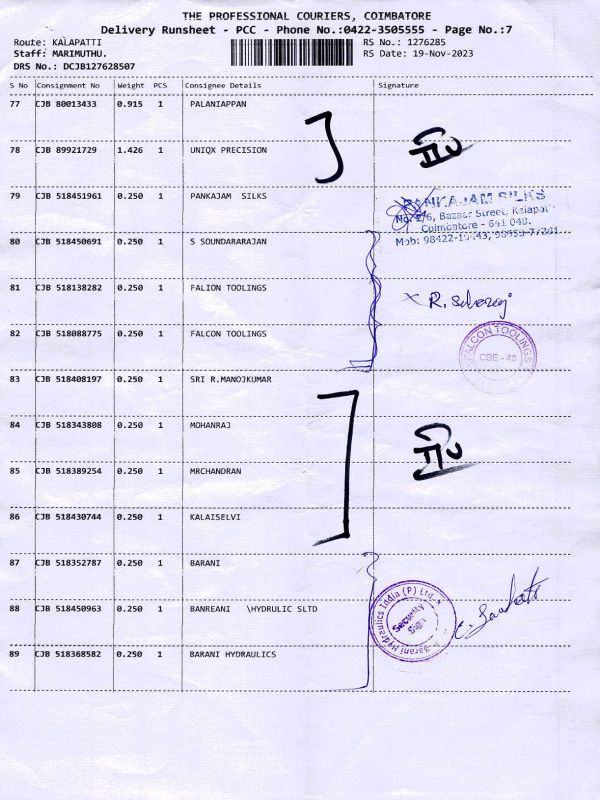 THE PROFESSIONAL COURIERS, COIMBATORE
Delivery Runsheet - PCC - Phone No.:0422-3505555 - Page No.:7
Route: KALAPATTI RS No.: 1276285
Staff: MARIMUTHU. RS Date: 19-Nov-2023
DRS No.: DCJB127628507
S No Consignment No Weight PCS Consignee Details Signature
77 CJB 80013433 0.915 1 PALANIAPPAN
78 CJB 89921729 1.426 1 UNIQX PRECISION
79 CJB 518451961 0.250 1 PANKAJAM SILKS
PANKAJAM SILKS
Bazaar Street, Kalapat
Coimbatore - 641 048.
80 CJB 518450691 0.250 1 S SOUNDARARAJAN
81 CJB 518138282 0.250 1 FALION TOOLINGS
82 CJB 518088775 0.250 1 FALCON TOOLINGS
FALCON TOOLINGS
CBE - 48
83 CJB 518408197 0.250 1 SRI R.MANOJKUMAR
84 CJB 518343808 0.250 1 MOHANRAJ
85 CJB 518389254 0.250 1 MRCHANDRAN
86 CJB 518430744 0.250 1 KALAISELVI
87 CJB 518352787 0.250 1 BARANI
88 CJB 518450963 0.250 1 BANREANI \HYDRULIC SLTD
Barani Hydraulics India (P) Ltd.
Security
Sign
89 CJB 518368582 0.250 1 BARANI HYDRAULICS